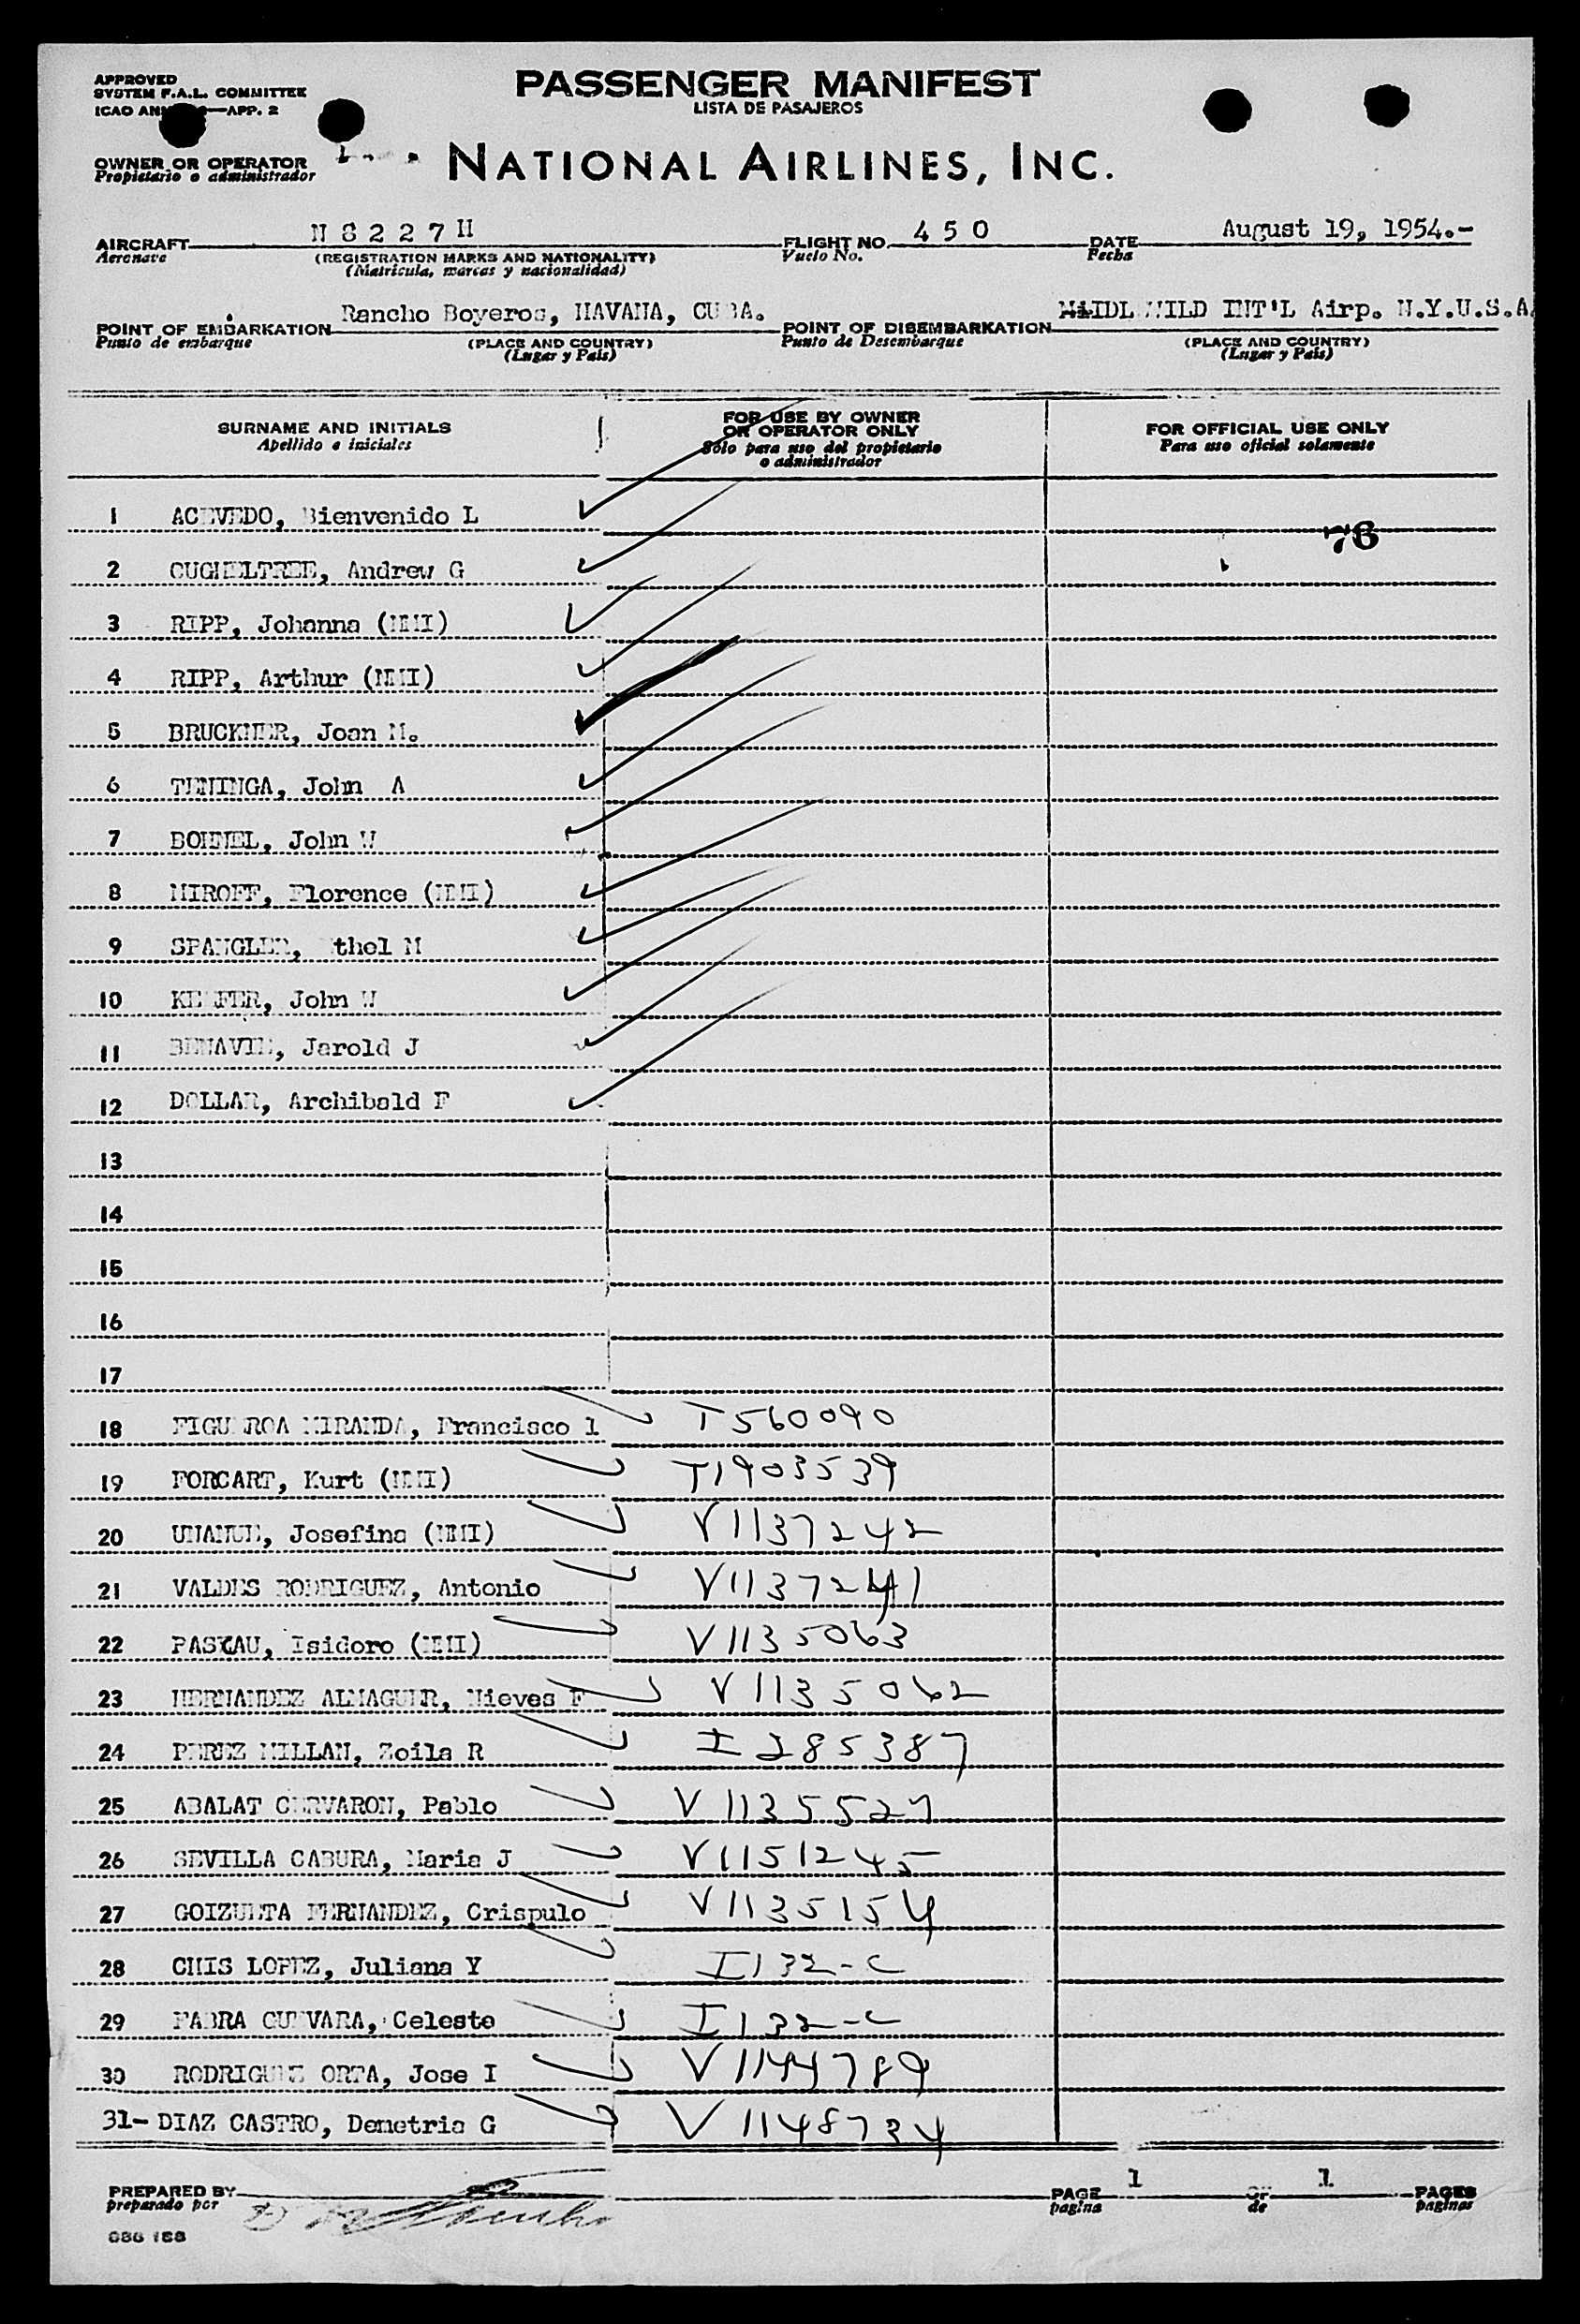 APPROVED
SYSTEM F.A.L. COMMITTEE
ICAO APP. 2
PASSENGER MANIFEST
LISTA DE PASAJEROS
OWNER OR OPERATOR
Propietario o administrador
NATIONAL AIRLINES, INC.
AIRCRAFT N 8 2 2 7 H
Aeronave
(REGISTRATION MARKS AND NATIONALITY)
(Matricula, marcas y nacionalidad)
FLIGHT NO. 4 5 0
Vuelo No.
DATE August 19, 1954.-
Fecha
POINT OF EMBARKATION Rancho Boyeros, HAVANA, CUBA.
Punto de embarque
(PLACE AND COUNTRY)
(Lugar y Pais)
POINT OF DISEMBARKATION IDLEWILD INT'L Airp. N.Y.U.S.A.
Punto de Desembarque
(PLACE AND COUNTRY)
(Lugar y Pais)
SURNAME AND INITIALS
Apellido e iniciales
FOR USE BY OWNER
OR OPERATOR ONLY
Sólo para uso del propietario
o administrador
FOR OFFICIAL USE ONLY
Para uso oficial solamente
1 ACEVEDO, Bienvenido L
76
2 OUGHELTREE, Andrew G
3 RIPP, Johanna (NMI)
4 RIPP, Arthur (NMI)
5 BRUCKNER, Joan M.
6 TENINGA, John A
7 BOHNEL, John W
8 MIROFF, Florence (NMI)
9 SPANGLER, Ethel M
10 KEFFER, John W
11 BENAVIE, Jarold J
12 DOLLAR, Archibald F
13
14
15
16
17
18 FIGUEROA MIRANDA, Francisco l T560090
19 FORCART, Kurt (NMI) T1903539
20 UNANUE, Josefina (NMI) V1137242
21 VALDES RODRIGUEZ, Antonio V1137241
22 PASCAU, Isidoro (NMI) V1135063
23 HERNANDEZ ALMAGUER, Nieves F V1135062
24 PEREZ MILLAN, Zoila R I285387
25 ABALAT CERVARON, Pablo V1135527
26 SEVILLA CABURA, Maria J V1151245
27 GOIZUETA FERNANDEZ, Crispulo V1135154
28 CHIS LOPEZ, Juliana Y I132-C
29 FABRA GUEVARA, Celeste I132-C
30 RODRIGUEZ ORTA, Jose I V1144789
31- DIAZ CASTRO, Demetria G V1148734
PREPARED BY
preparado por
PAGE 1 OF 1 PAGES
pagina de paginas